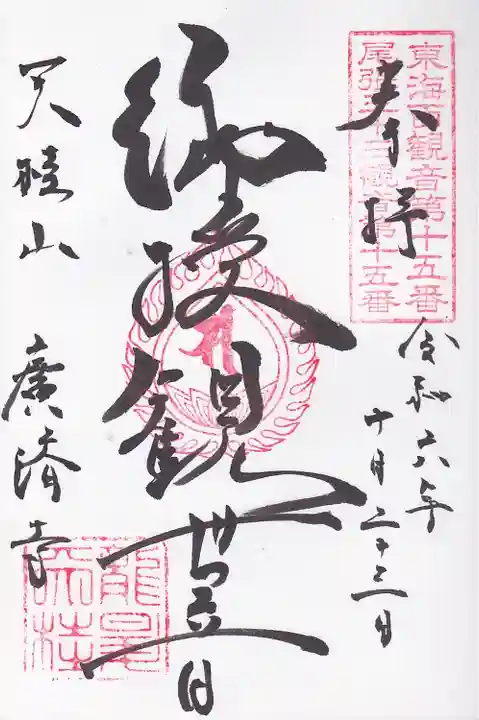 東海百観音第十五番
尾張三十三観音第十五番
奉拝
令和六年
十月二十三日
縁授観世音
廣済寺